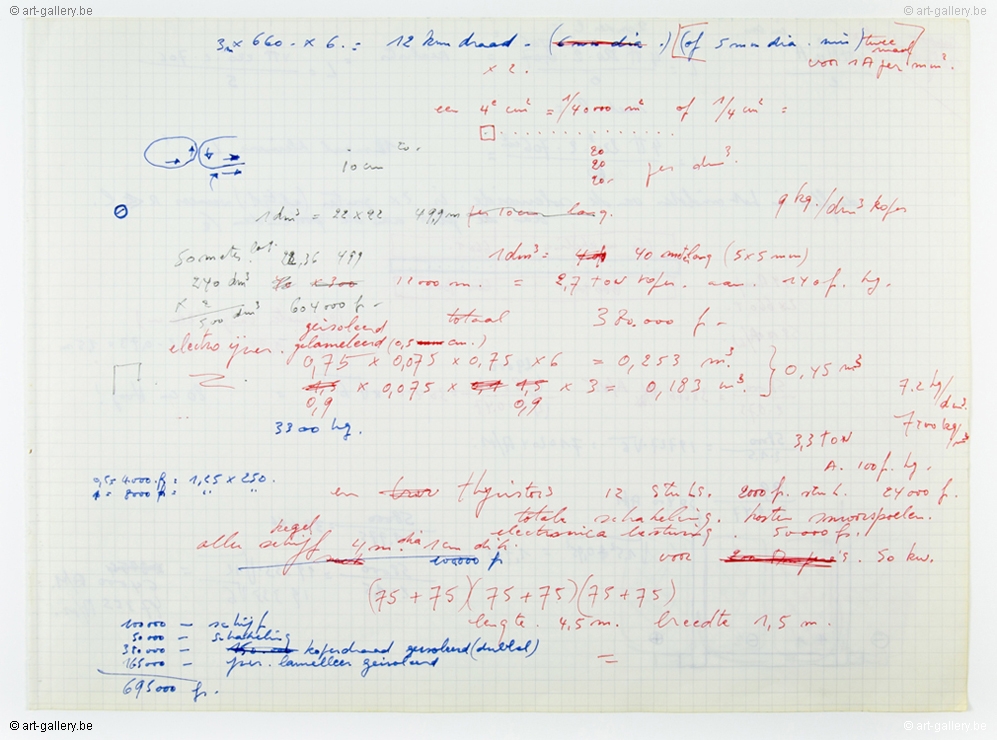 © art-gallery.be © art-gallery.be
3m x 660 - x 6. = 12 km draad - (6 mm dia.) (of 5 mm dia. min) twee maal
x 2. voor 1A per mm².
een 4e cm² = 1/40000 m² of 1/4 cm² =
20
20
20- per dm³.
10 cm 20.
9 kg./dm³ koper
1 dm³ = 22 x 22 499 m per 10 cm lang.
50 meter 22,36 499 1 dm³ = 40 lang (5x5 mm)
240 dm³ x 300 12000 m. = 2,7 ton koper. aan. 140 f. kg.
x 2
500 dm³ 604000 f -
geisoleerd totaal 380.000 f -
electro ijzer. gelameleerd (0,5 cm.)
0,75 x 0,075 x 0,75 x 6 = 0,253 m³
1,5 x 0,075 x 1,5 x 3 = 0,183 m³. } 0,45 m³
0,9 0,9
7.2 kg/dm³.
7200 kg/m³
3300 kg.
3,3 ton
A. 100 f. kg.
4000 f = 1,25 x 250.
8000 f = " "
en thyristors 12 stuks. 2000 f. stuk. 24000 f.
totale schakeling. kosten smoorspoelen.
kegel electronica besturing. 50000 f.
alles schijf 4 m. dia 1 cm dik.
100000 f voor 50 kw.
(75 + 75)(75 + 75)(75 + 75)
lengte. 4,5 m. breedte 1,5 m.
=
100000 - schijf
50000 - schakeling
380000 - koperdraad geisoleerd (dubbel)
165000 - ijzer. lamelleer geisoleerd
695000 f.
© art-gallery.be © art-gallery.be